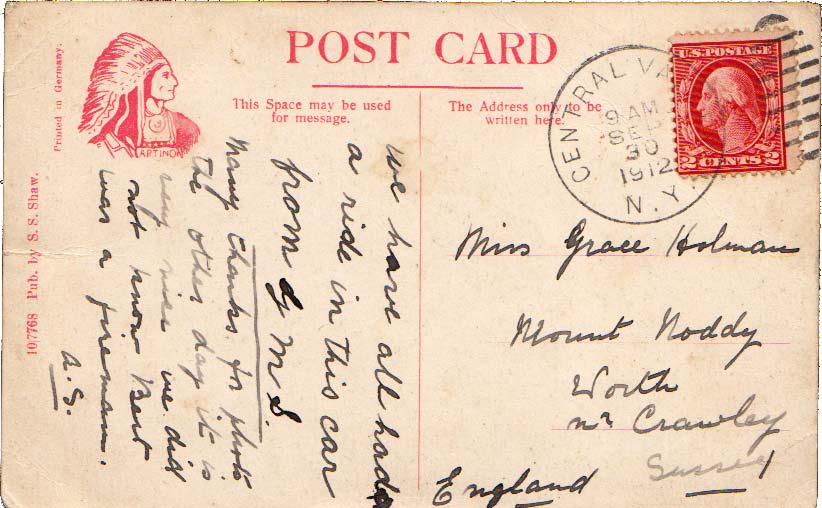 POST CARD
Printed in Germany.
ARTINO
107768 Pub. by S. S. Shaw.
This Space may be used
for message.
The Address only to be
written here.
CENTRAL VA
9 AM
SEP
30
1912
N.Y.
U.S. POSTAGE
2 CENTS 2
we have all had
a ride in this car
from M S.
Many thanks for photo
the other day it is
very nice we did
not know Bert
was a fireman.
A. S.
Miss Grace Holman
Mount Noddy
Worth
nr Crawley
Sussex
England